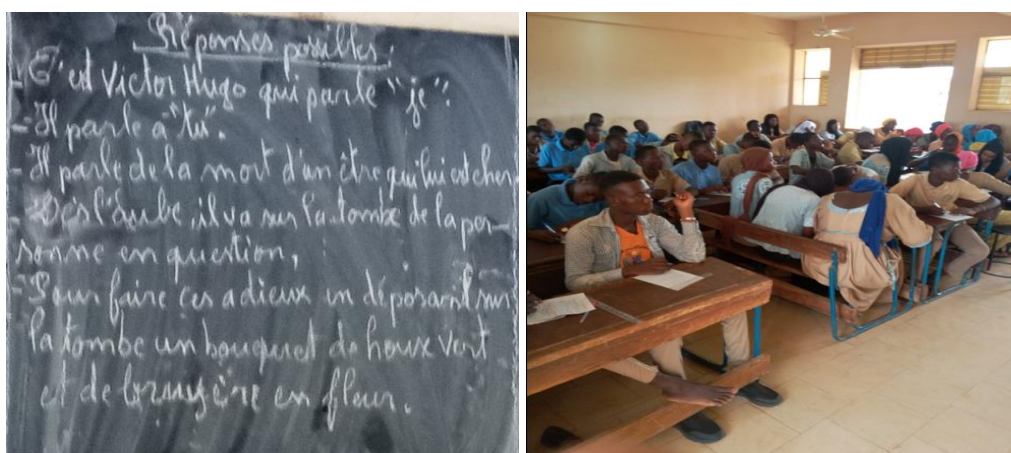 Réponses possibles:
- C'est Victor Hugo qui parle "je".
- Il parle à "tu".
- Il parle de la mort d'un être qui lui est cher
- Dès l'aube, il va sur la tombe de la per-
sonne en question,
- Pour faire ces adieux en déposant sur
la tombe un bouquet de houx vert
et de bruyère en fleur.